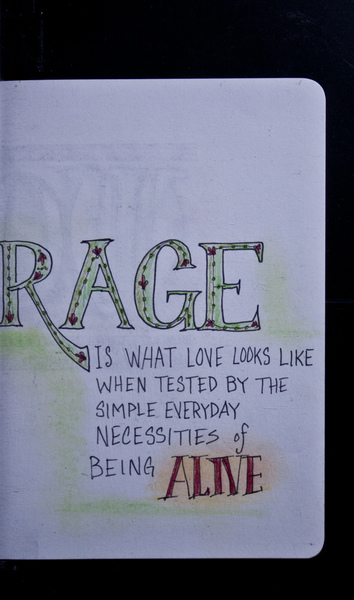 RAGE
IS WHAT LOVE LOOKS LIKE
WHEN TESTED BY THE
SIMPLE EVERYDAY
NECESSITIES of
BEING ALIVE